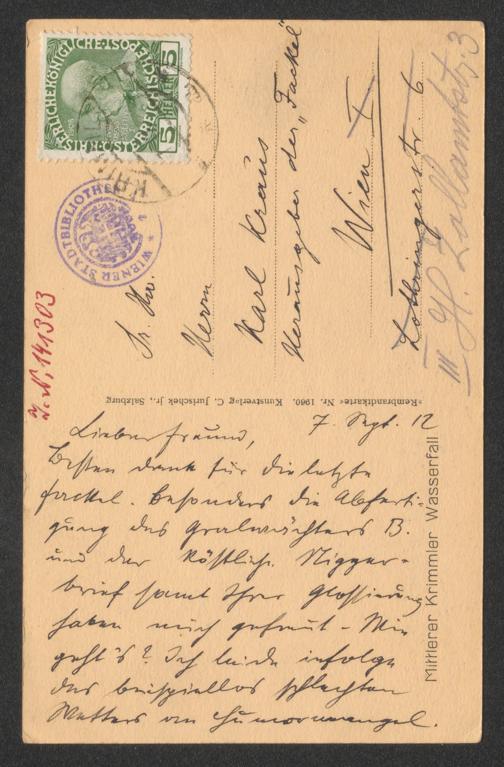 KAISERLICHE KÖNIGLICHE ÖSTERREICHISCHE POST
5 HELLER 5
WIENER STADTBIBLIOTHEK
I. N. 141303
Sr. Hw.
Herrn
Karl Kraus
Herausgeber der „Fackel"
Wien I
Lothringerstr. 6
III H. Zollamtstr. 3
»Rembrandtkarte« Nr. 1960. Kunstverlag C. Jurischek jr., Salzburg
Mittlerer Krimmler Wasserfall
7. Sept. 12
Lieber Freund,
besten Dank für die letzte
Fackel. Besonders die Abferti-
gung des Gralwächters B.
und der köstliche Nigger-
brief samt Ihrer Glossierung
haben mich gefreut - Wie
geht's? Ich leide infolge
des beispiellos schlechten
Wetters an Humormangel.